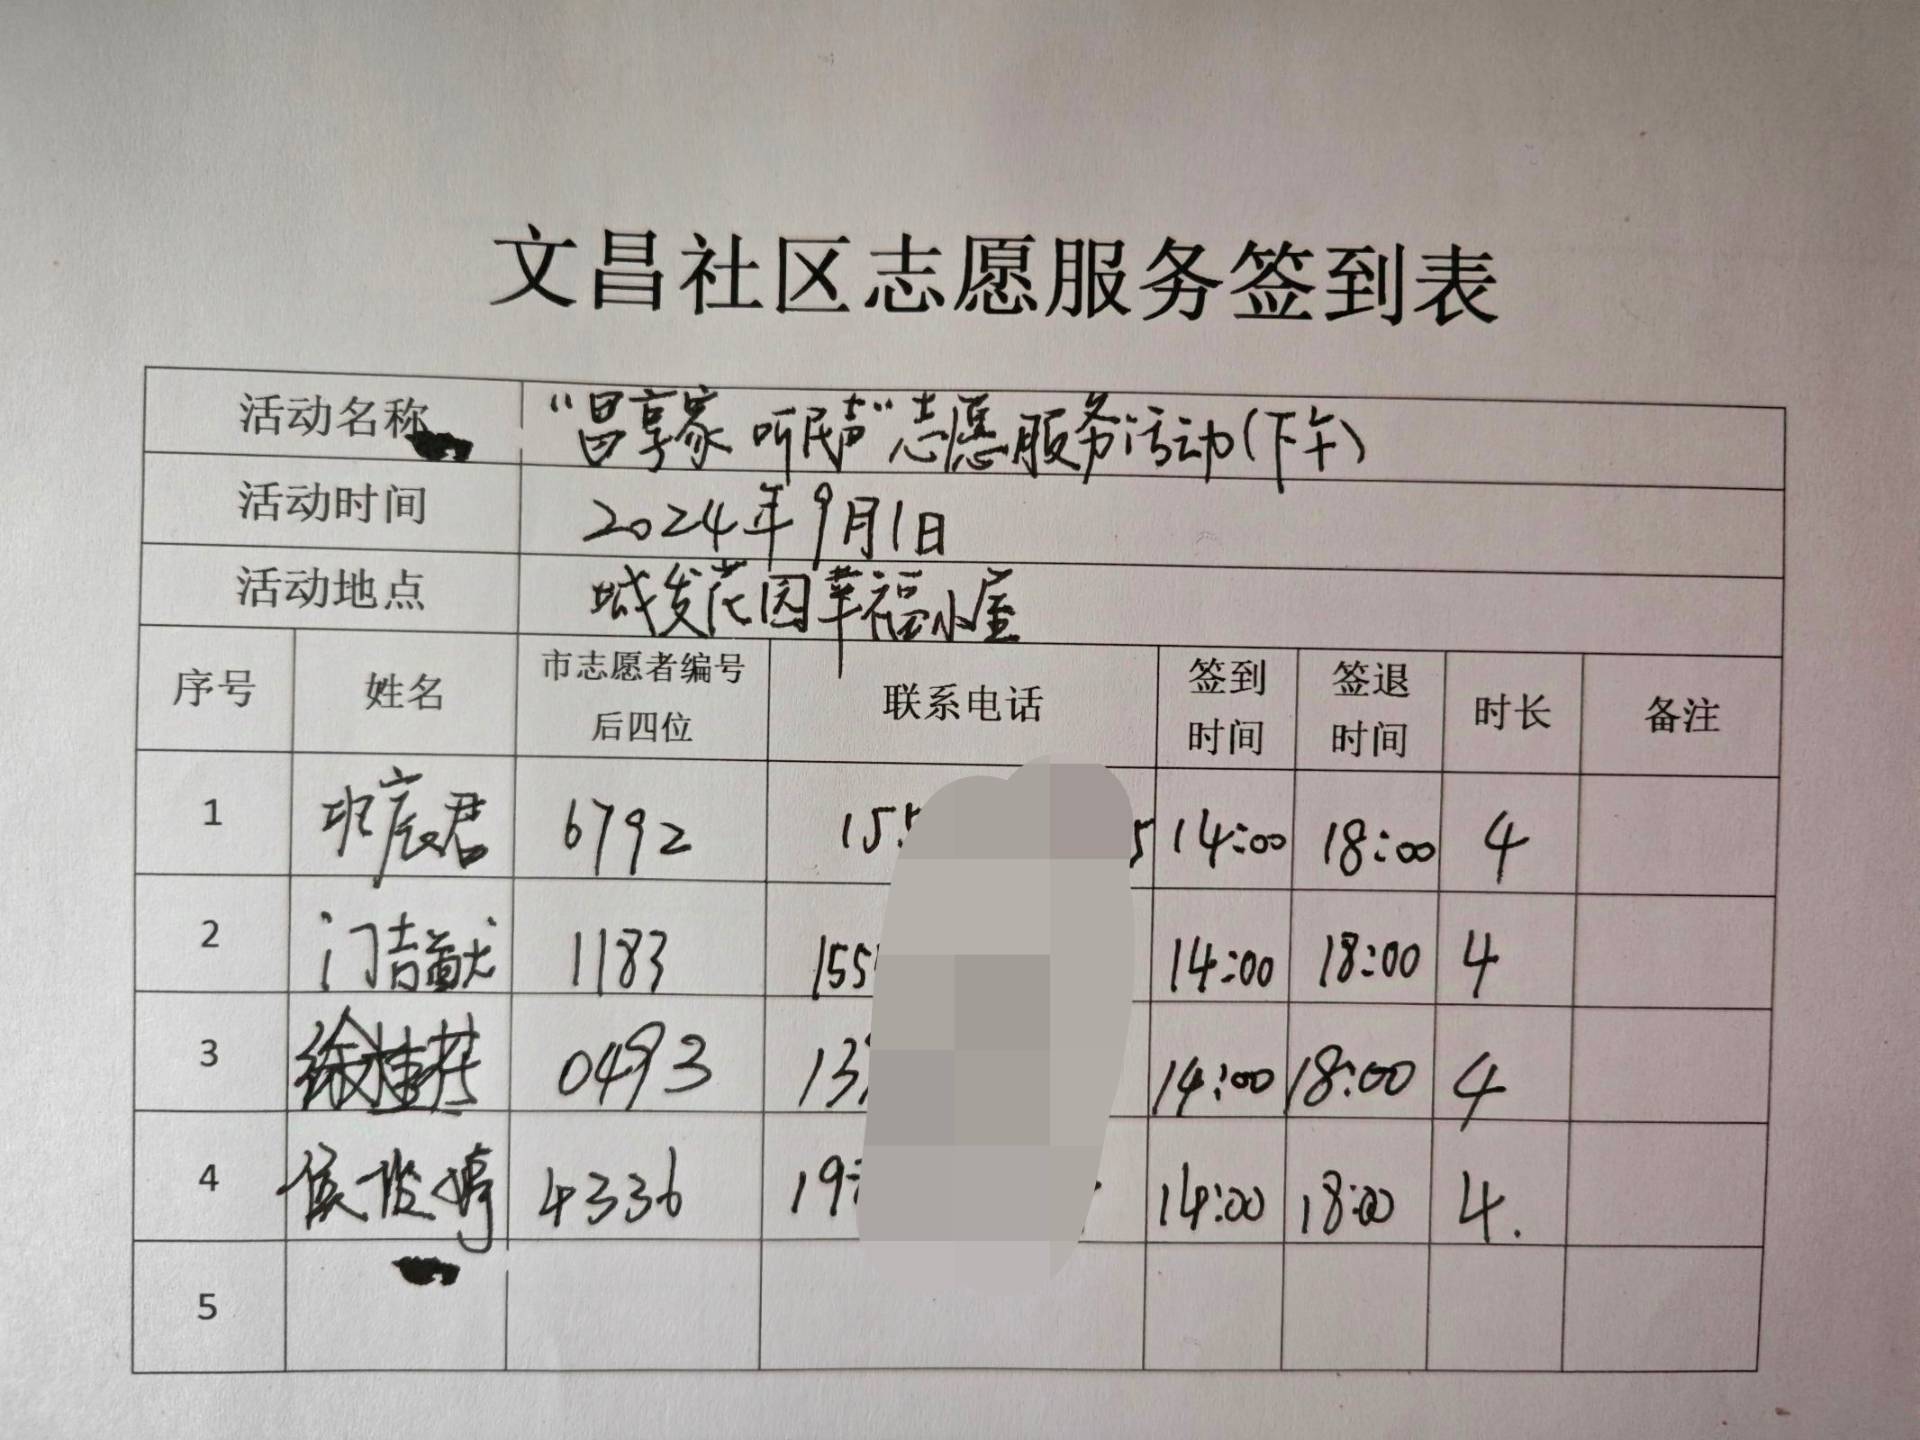 文昌社区志愿服务签到表
活动名称 “昌享家 听民声”志愿服务活动(下午)
活动时间 2024年9月1日
活动地点 城发花园幸福小屋
序号 姓名 市志愿者编号后四位 联系电话 签到时间 签退时间 时长 备注
1 班辰君 6792 155 5 14:00 18:00 4
2 门吉献 1183 155 14:00 18:00 4
3 徐桂花 0493 13 14:00 18:00 4
4 侯 婷 4336 19 14:00 18:00 4.
5